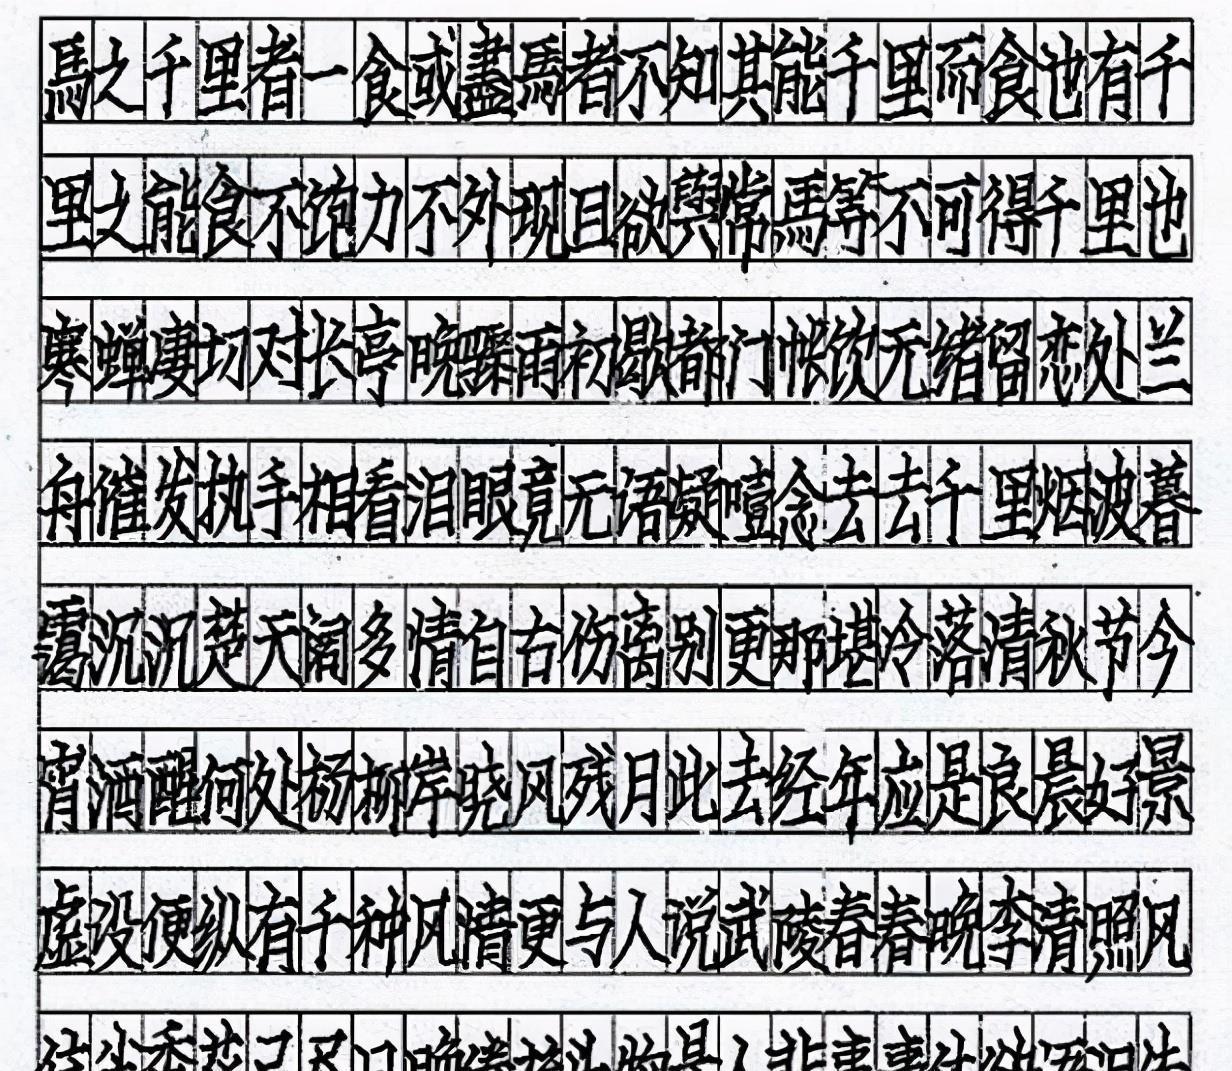 馬之千里者一食或盡馬者不知其能千里而食也有千
里之能食不饱力不外现且欲與常馬等不可得千里也
寒蝉凄切对长亭晚骤雨初歇都门帐饮无绪留恋处兰
舟催发执手相看泪眼竟无语凝噎念去去千里烟波暮
霭沉沉楚天阔多情自古伤离别更那堪冷落清秋节今
宵酒醒何处杨柳岸晓风残月此去经年应是良晨好景
虚设便纵有千种风情更与人说武陵春春晚李清照风